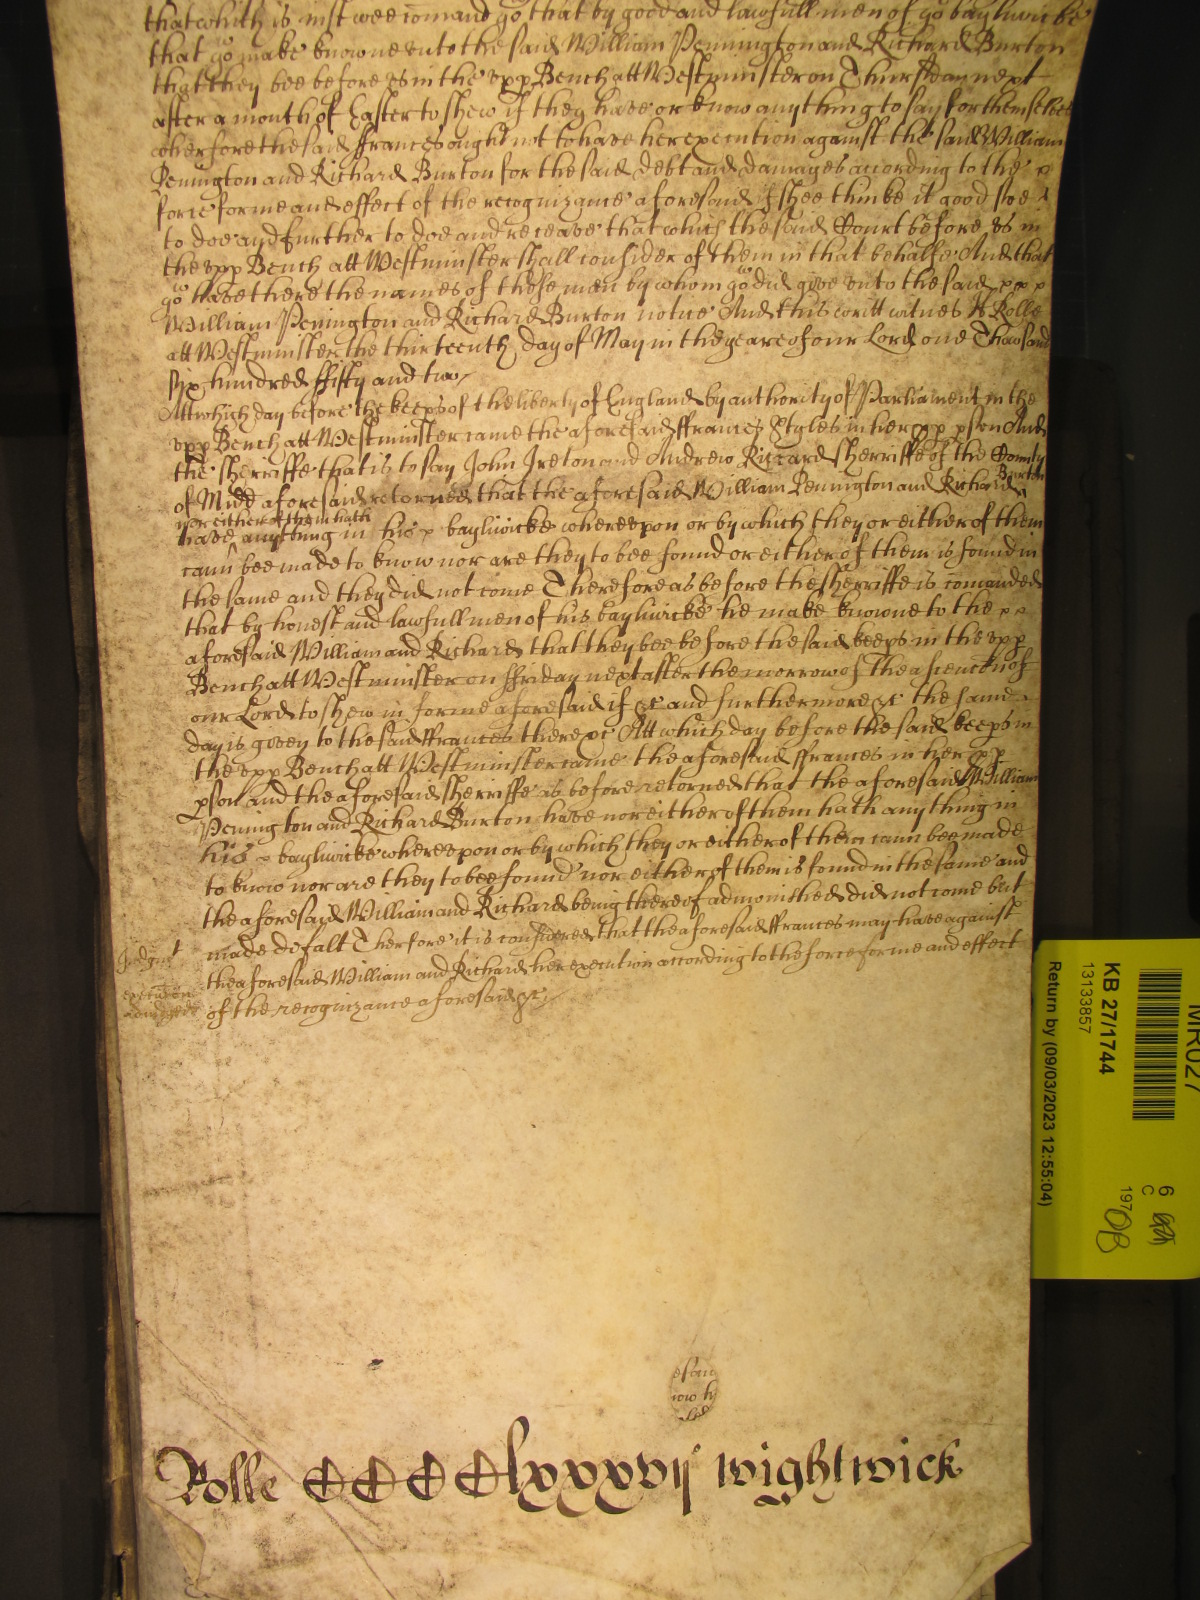 that which is iust wee comand yo that by good and lawfull men of yo bayliwicke
that yo make knowne unto the said William Pennington and Richard Burton
that they bee before us in the upp Bench att Westminster on Thursday next
after a month of Easter to shew if they have or know any thing to say for themselves
wherfore the said ffrances ought not to have her execution against the said William
Penington and Richard Burton for the said debt and damages according to the
force forme and effect of the recognizance aforesaid if shee thinke it good soe
to doe and further to doe and receave that which the said Court before us in
the upp Bench att Westminster shall consider of them in that behalfe And that
yo have there the names of those men by whom yo did give unto the said
William Penington and Richard Burton notice And this writt witnes H Rolle
att Westminster the thirteenth day of May in the yeare of our Lord one Thousand
six hundred fifty and two
Att which day before the keeps of the liberty of England by authority of Parliament in the
upp Bench att Westminster came the aforesaid ffrances Styles in her pp pson And
the sherriffe that is to say John Ireton and Andrew Riccard sherriffe of the County
of Midd aforesaid retorned that the aforesaid William Penington and Richard Burton
nor either of them hath
have anything in his bayliwicke whereupon or by which they or either of them
cann bee made to know nor are they to bee found or either of them is found in
the same and they did not come Therefore as before the sherriffe is comanded
that by honest and lawfull men of his bayliwicke he make knowne to the
aforesaid William and Richard that they bee before the said keeps in the upp
Bench att Westminster on ffriday next after the morrow of the ascencon of
our Lord to shew in forme aforesaid if &c and furthermore &c the same
day is given to the said ffrances there &c Att which day before the said keeps in
the upp Bench att Westminster came the aforesaid ffrances in her pp
pson and the aforesaid sherriffe as before retorned that the aforesaid William
Penington and Richard Burton have nor either of them hath any thing in
his bayliwicke whereupon or by which they or either of them cann bee made
to know nor are they to bee found nor either of them is found in the same and
the aforesaid William and Richard being thereof admonished did not come but
made defalt Therfore it is considered that the aforesaid ffrances may have against
Judgmt
the aforesaid William and Richard her execution according to the force forme and effect
execucon
of the recognizance aforesaid &c
esaid
now h
Rolle CCCClxxxvij wightwick
MR027
KB 27/1744
13133857
Return by (09/03/2023 12:55:04)
6
C
197